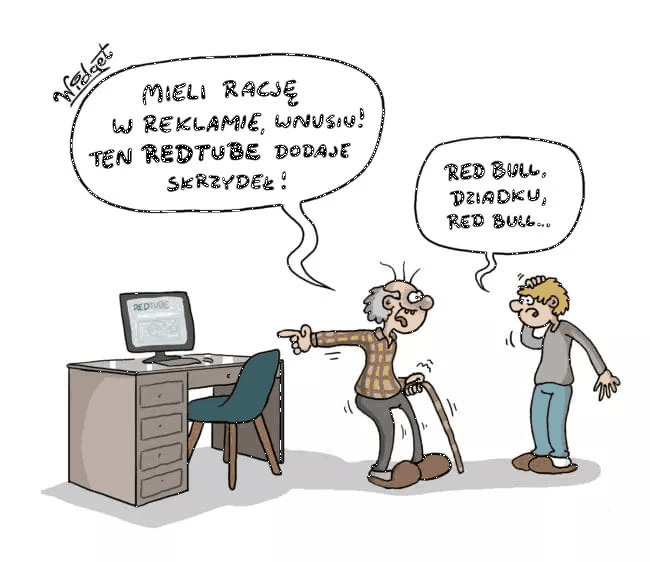 Widget
MIELI RACJĘ
W REKLAMIE, WNUSIU!
TEN REDTUBE DODAJE
SKRZYDEŁ!
RED BULL,
DZIADKU,
RED BULL...
REDTUBE